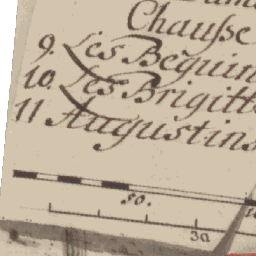 Chauſse
9. Les Béguin
10. Les Brigitt
11 Augustins
50.
3a